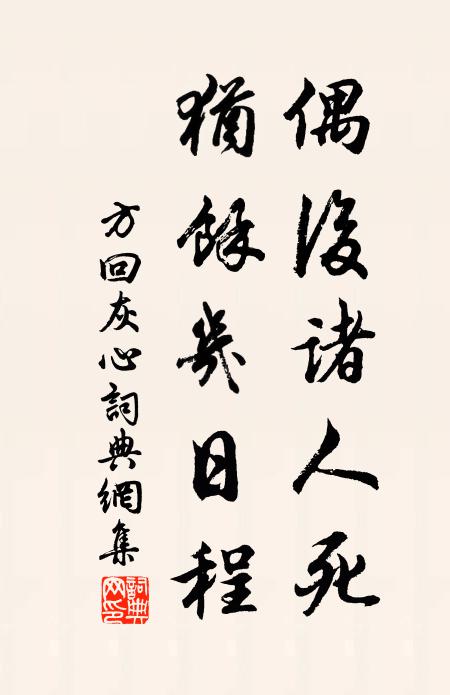 偶後諸人死
猶餘幾日程
方回灰心詞典網集
詞典網印